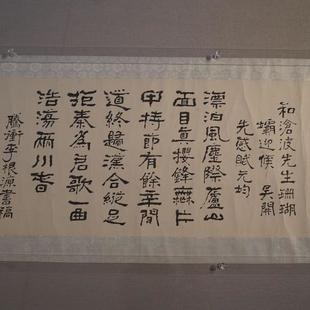 和滄波先生珊瑚
壩迎候吴開
先感賦元均
漂泊風塵際廬山
面目真攖鋒無片
甲持節有餘辛間
道終歸漢合縱足
拒秦為君歌一曲
浩蕩兩川春
騰衝李根源書稿